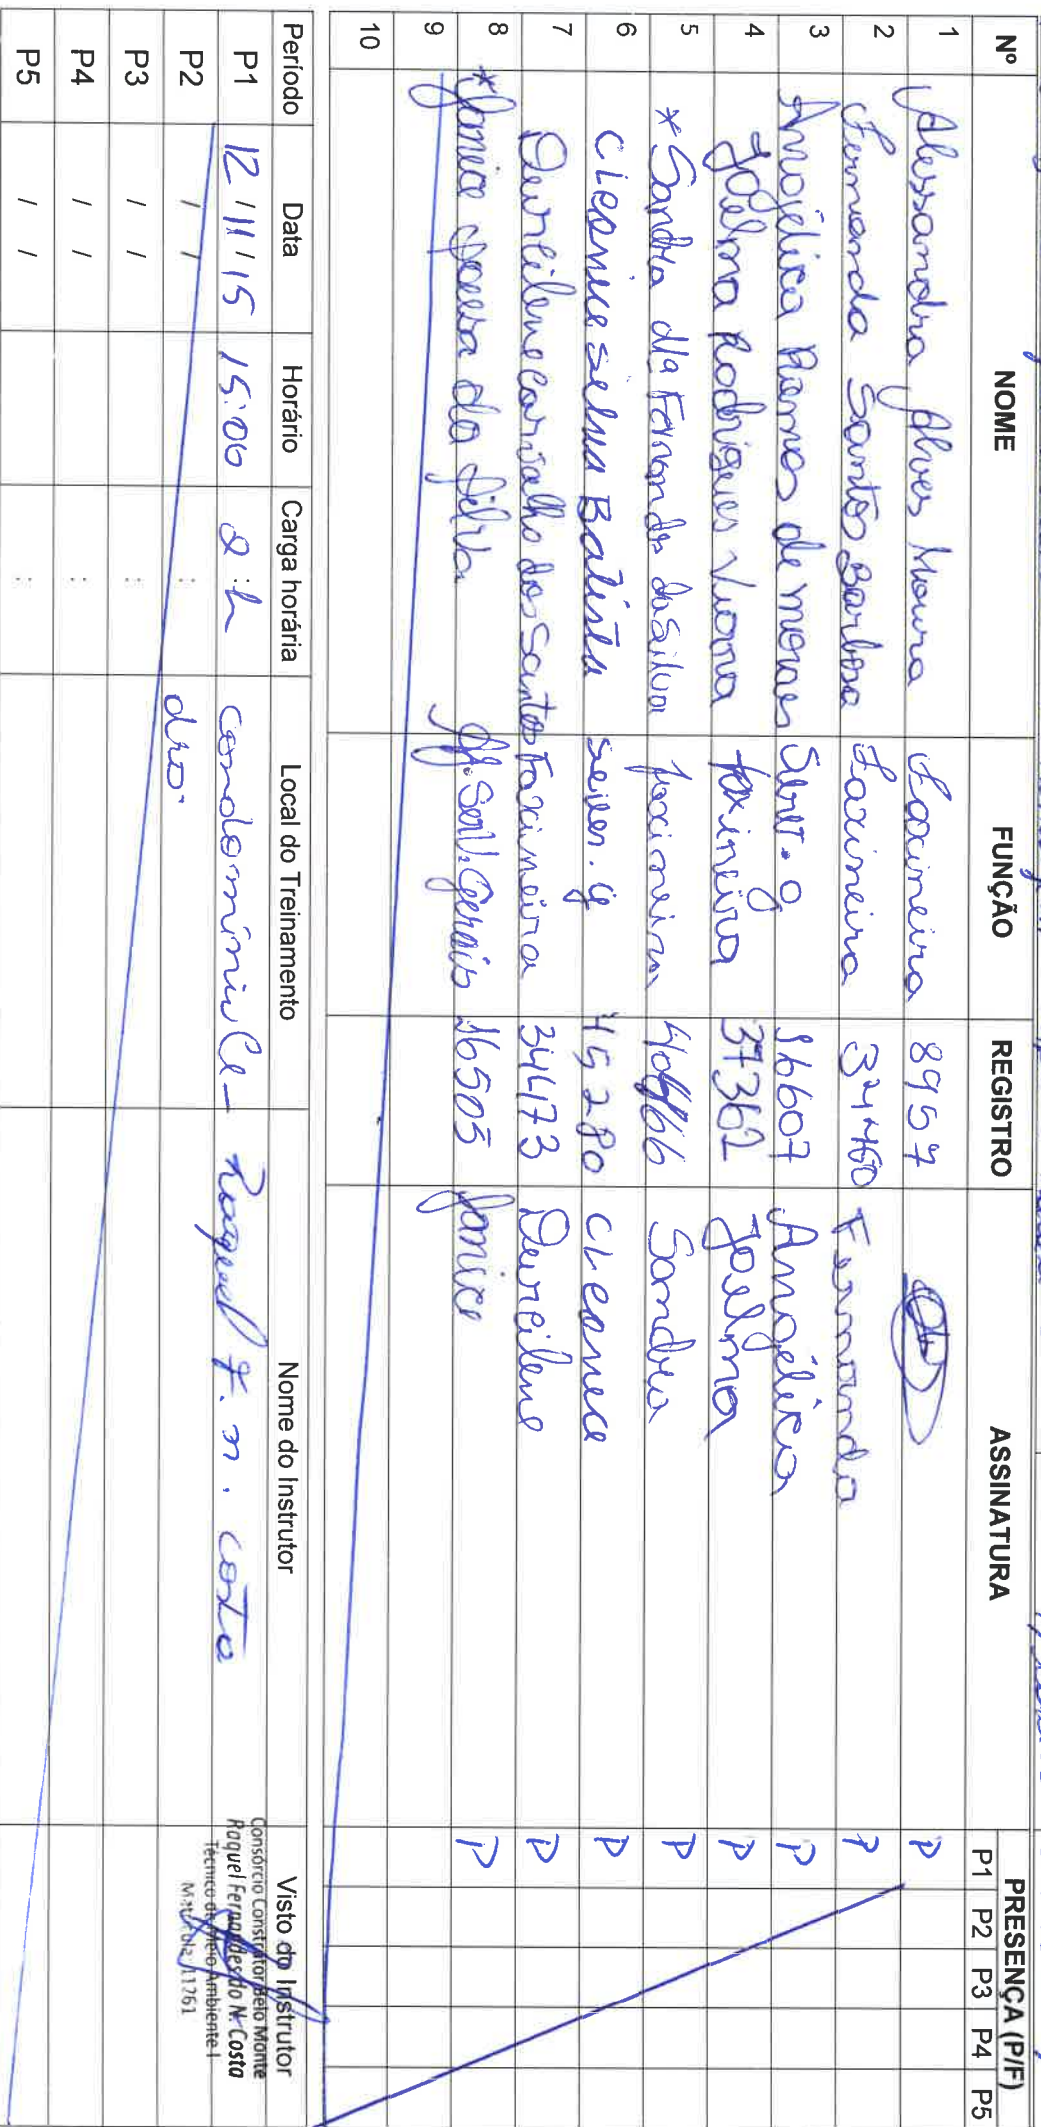 Nº NOME FUNÇÃO REGISTRO ASSINATURA PRESENÇA (P/F)
P1 P2 P3 P4 P5
1 Alessandra Alves Moura Faxineira 8957 P
2 Fernanda Santos Barbosa Faxineira Fernanda P
3 Angélica Ramos de moraes 16607 Angélica P
4 Joelma Rodrigues Viana faxineira 37362 Joelma P
5 *Sandra da Fernandes da Silva faxineira Sandra P
6 Cleonice selma Batista 45280 Cleonice P
7 Deurilene Carvalho dos Santos Faxineira 34473 Deurilene P
8 *Janice Souza da Silva Aj. Serv. Gerais 16505 Janice P
9
10
Período Data Horário Carga horária Local do Treinamento Nome do Instrutor Visto do Instrutor
P1 12/11/15 15:00 2:h Raquel F. N. Costa
Consórcio Construtor Belo Monte
Raquel Fernandes do N. Costa
Técnico de Meio Ambiente I
Matrícula: 11761
P2 / / :
P3 / / :
P4 / / :
P5 / / :